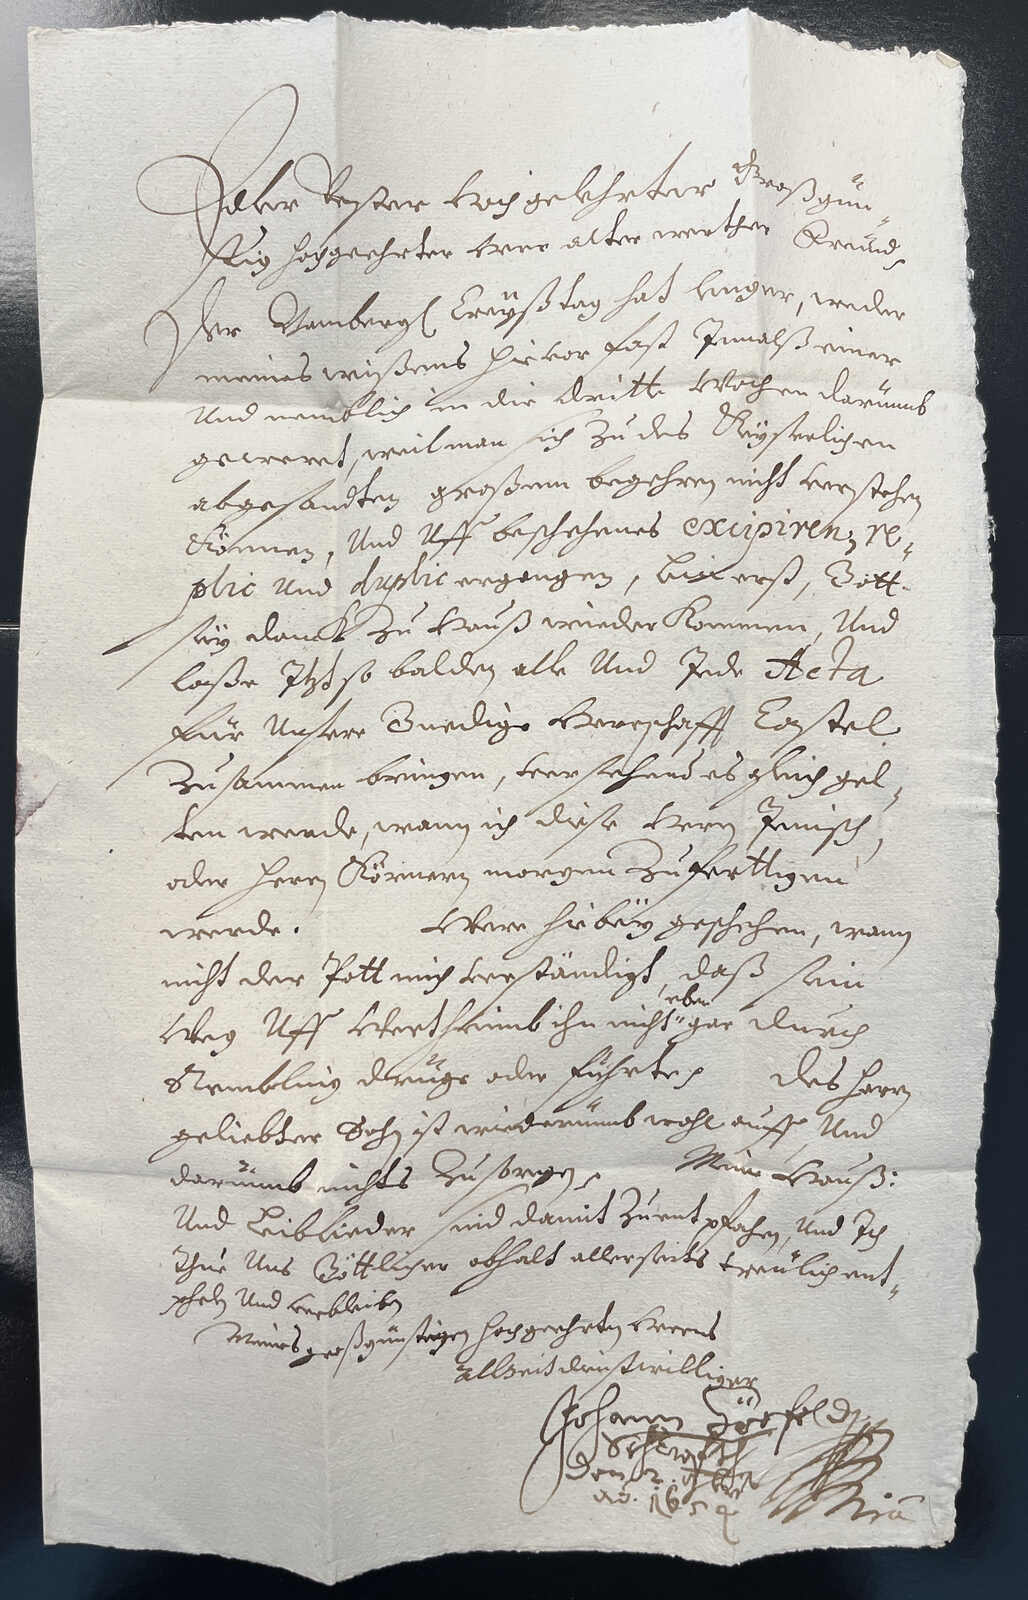 Edler Vester Hochgelehrter Großgün-
stig hochgeehrter Herr alter werther Freünd,
Der Bambergl. Creÿßtag hat lenger, weder
meines wißens hievor fast Jemalß einer
Und nemblich in die dritte Wochen darümb
geweret, weil man sich zu des Keÿserlichen
abgesandten großem begehren nicht verstehen
Können, Und Uff beschehenes excipiren, re-
plic Und duplic ergangen, bin erst, Gott
seÿ danck zu Hauß wieder Kommen, Und
laße Itzt so balden alle Und Jede Acta
für Unsere Gnedige Herrschafft Castel
zusammen bringen, versehend es gleich gel-
ten werde, wann ich diese Herrn Jenisch,
oder Herrn Körnern morgen zufertigen
werde. Were hiebeÿ geschehen, wann
nicht der Pott mich verständigt, daß sein
Weg Uff Wertheimb ihn nicht eben gar durch
Remblingen trüge oder führte. Des Herrn
geliebter Sohn ist wiederümb wohl auff, Und
darümb nichts zu sorgen. Meine Hauß:
Und Leiblieder sind damit zu entpfahen, Und Ich
thue Uns Göttlicher obhalt allerseits treülich ent-
phelen Und verbleibe
Meines großgünstigen hochgeehrten Herrns
allzeit dienstwilliger
Johann
den 2.
ao. 1654